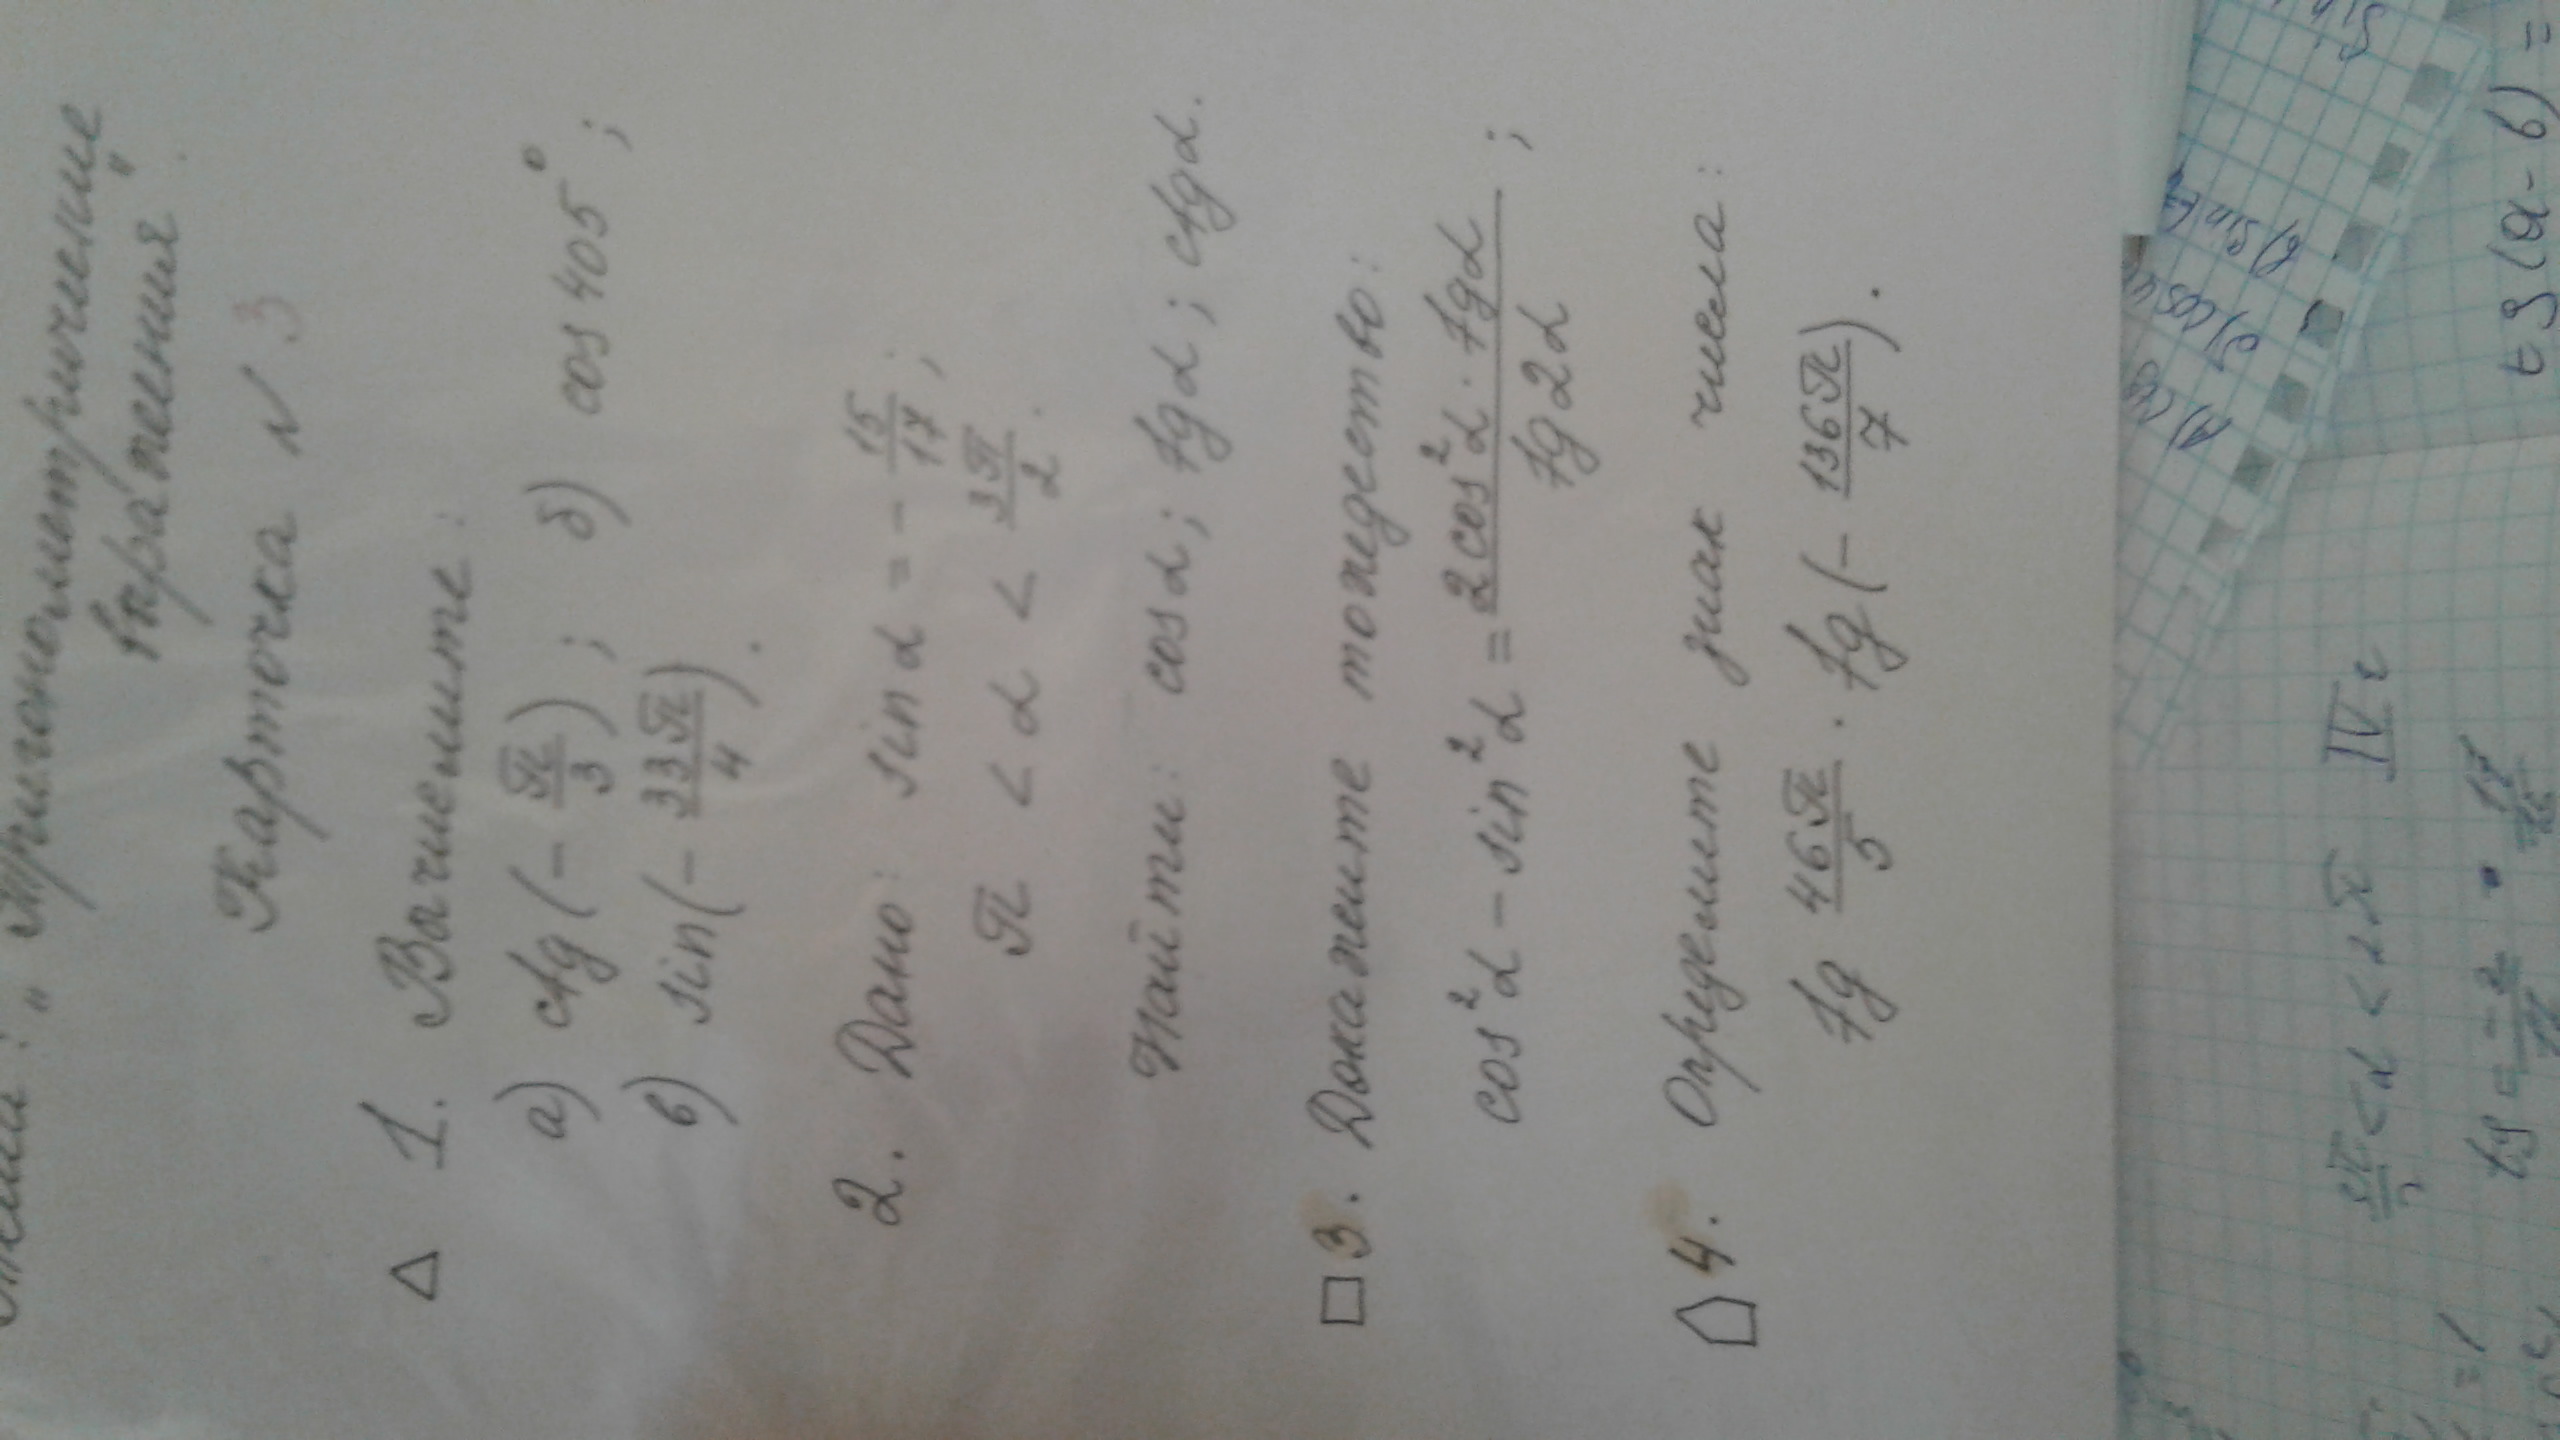 Тема: „Тригонометрические
выражения".
Карточка N 3
△ 1. Вычислите:
а) ctg(-π/3); б) cos 405°;
в) sin(-33π/4).
2. Дано: sin α = -15/17;
π < α < 3π/2.
Найти: cos α; tg α; ctg α.
□ 3. Докажите тождество:
cos²α - sin²α = 2cos²α · tgα / tg2α;
4. Определите знак числа:
tg 46π/5 · tg(-136π/7).
< α < 2π IV
tg (a-b) =